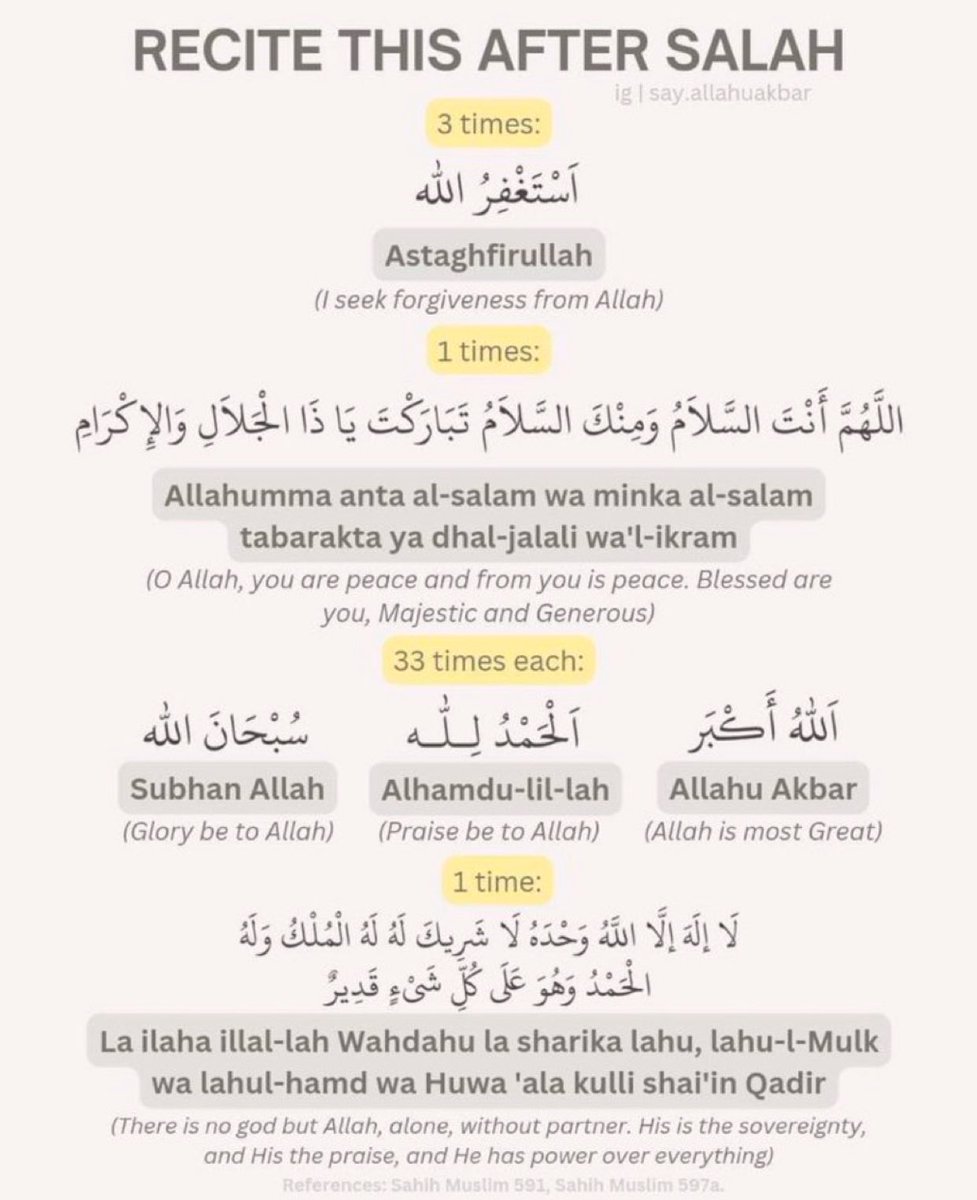 RECITE THIS AFTER SALAH
ig | say.allahuakbar
3 times:
اَسْتَغْفِرُ اللّٰه
Astaghfirullah
(I seek forgiveness from Allah)
1 times:
اللَّهُمَّ أَنْتَ السَّلاَمُ وَمِنْكَ السَّلاَمُ تَبَارَكْتَ يَا ذَا الْجَلاَلِ وَالإِكْرَامِ
Allahumma anta al-salam wa minka al-salam
tabarakta ya dhal-jalali wa'l-ikram
(O Allah, you are peace and from you is peace. Blessed are
you, Majestic and Generous)
33 times each:
سُبْحَانَ اللّٰه اَلْحَمْدُ لِلّٰه اَللّٰهُ أَكْبَر
Subhan Allah Alhamdu-lil-lah Allahu Akbar
(Glory be to Allah) (Praise be to Allah) (Allah is most Great)
1 time:
لَا إِلَهَ إِلَّا اللَّهُ وَحْدَهُ لَا شَرِيكَ لَهُ لَهُ الْمُلْكُ وَلَهُ
الْحَمْدُ وَهُوَ عَلَى كُلِّ شَىْءٍ قَدِيرٌ
La ilaha illal-lah Wahdahu la sharika lahu, lahu-l-Mulk
wa lahul-hamd wa Huwa 'ala kulli shai'in Qadir
(There is no god but Allah, alone, without partner. His is the sovereignty,
and His the praise, and He has power over everything)
References: Sahih Muslim 591, Sahih Muslim 597a.